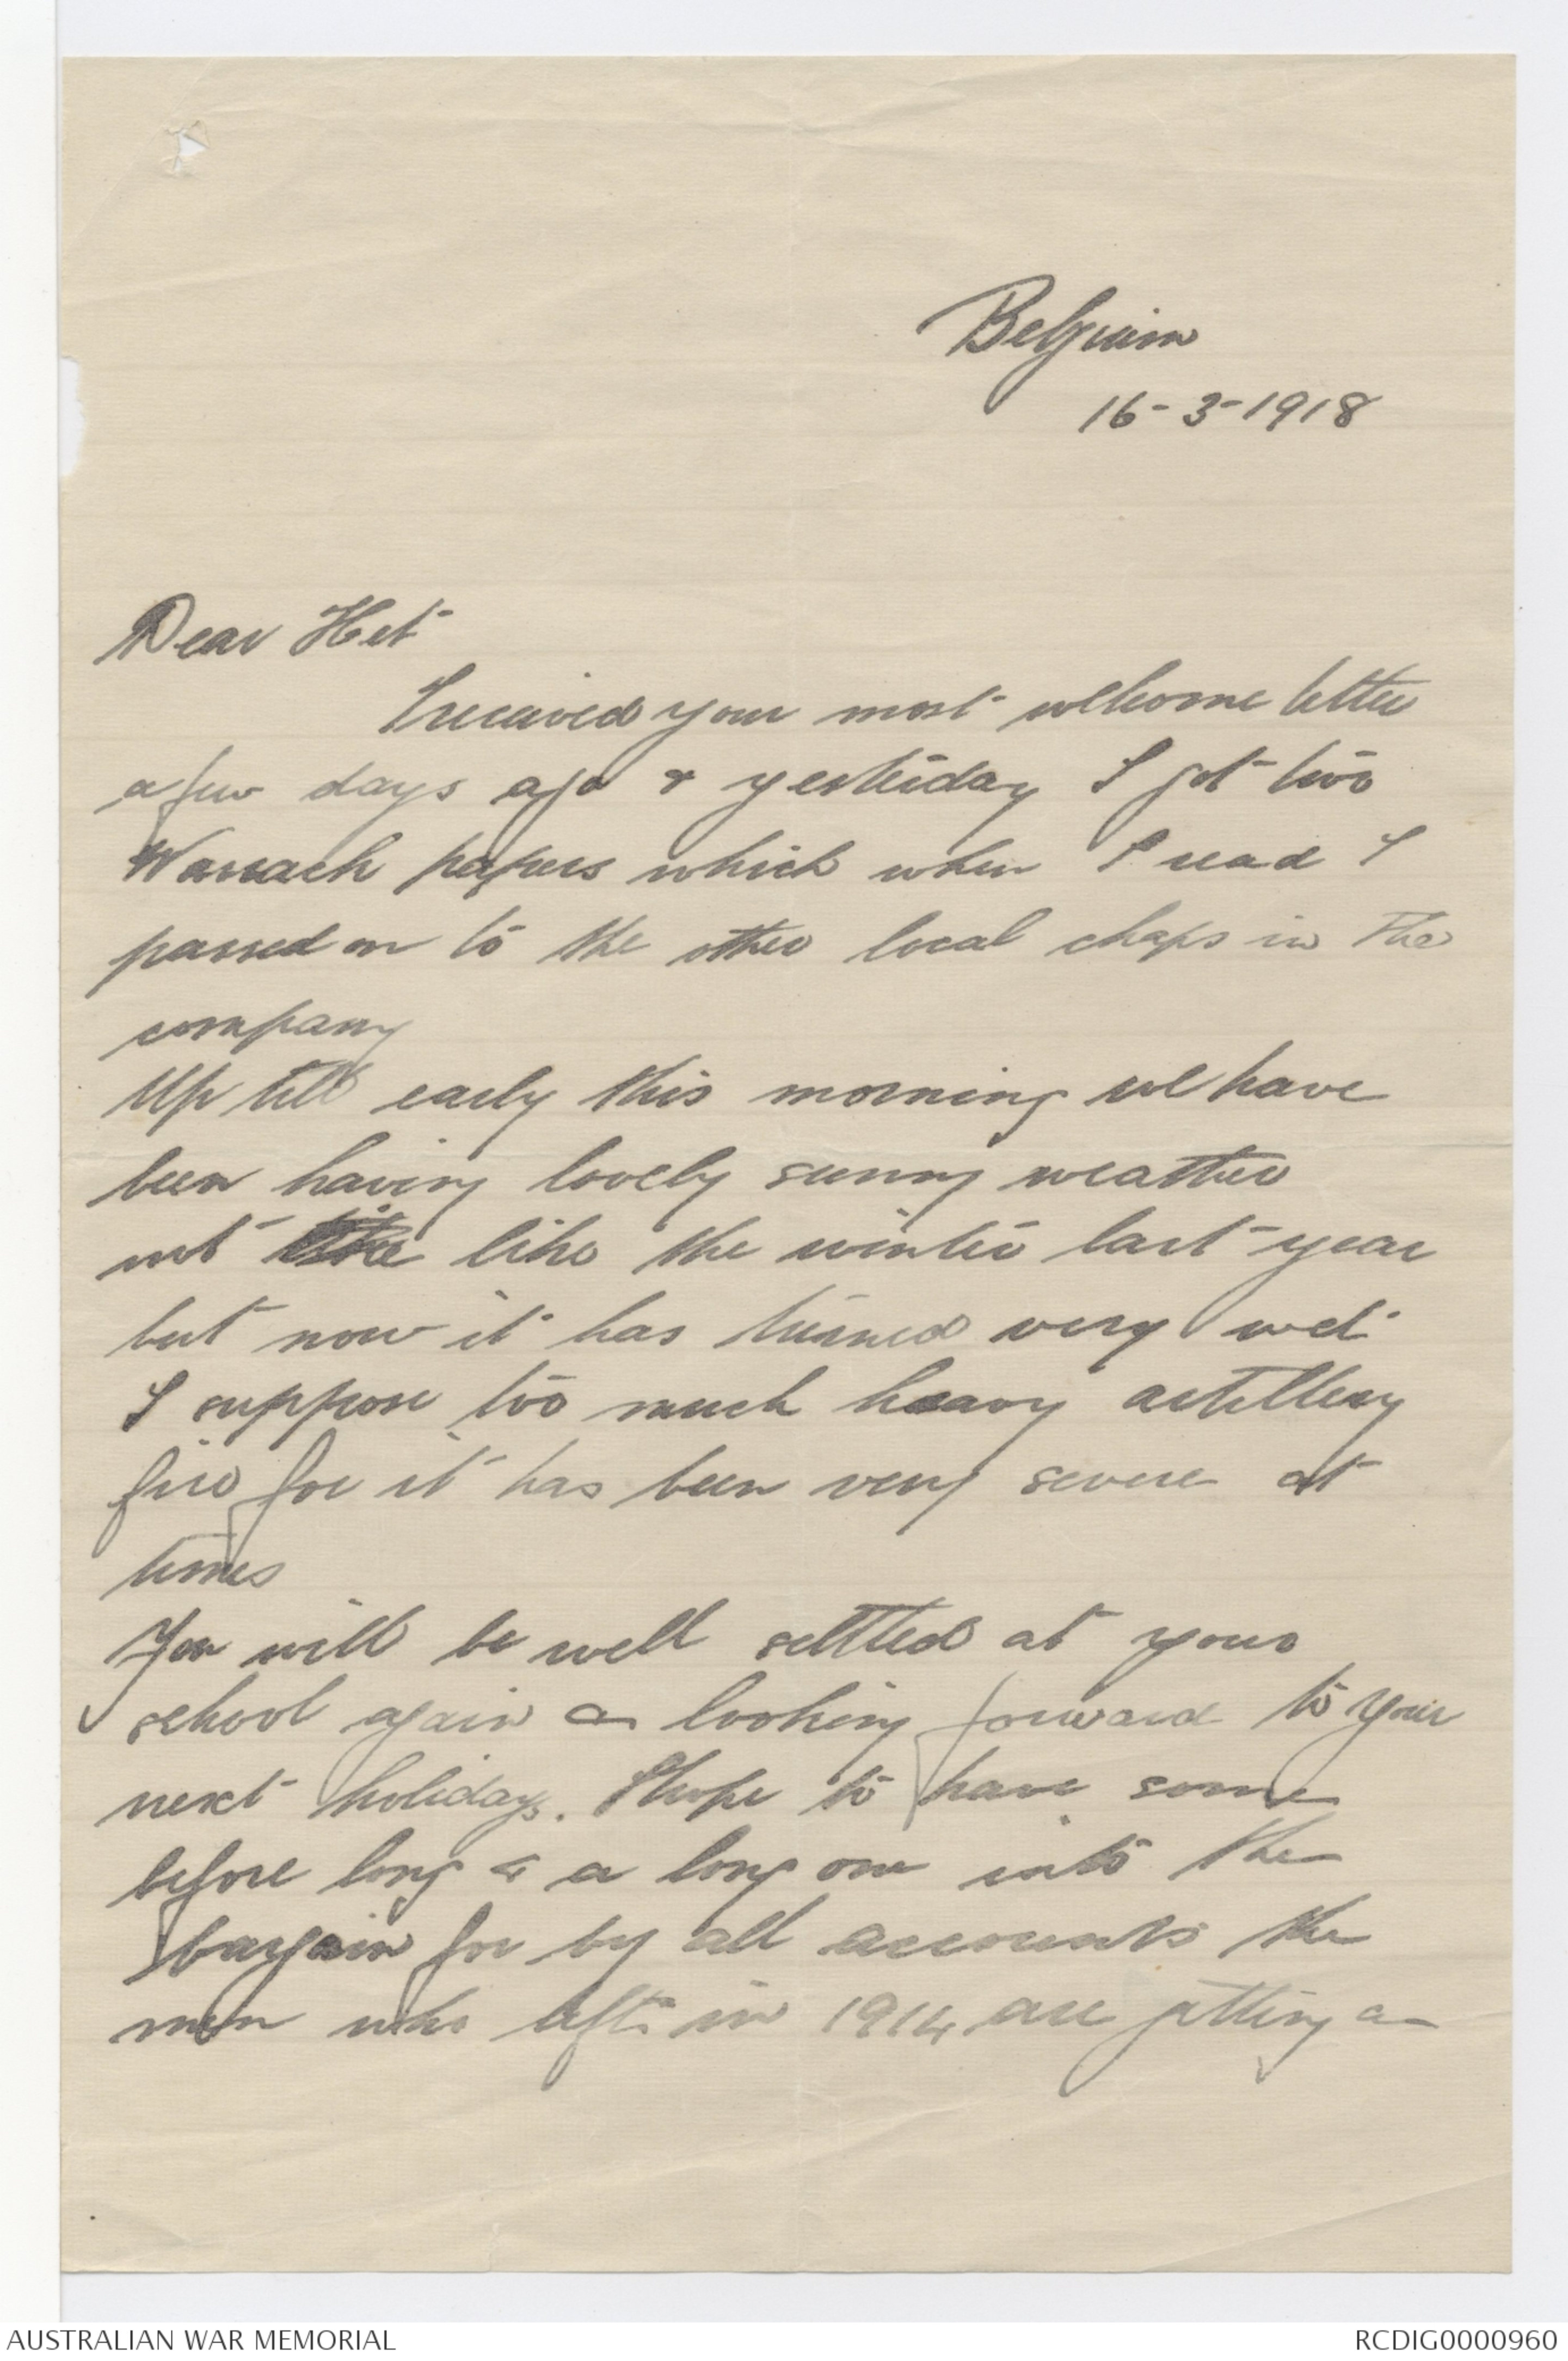 Belgium
16-3-1918
Dear Het
I received your most welcome letter
a few days ago & yesterday I got two
papers which when I read I
passed on to the other local chaps in the
company
Up till early this morning we have
been having lovely sunny weather
not like like the winter last year
but now it has turned very wet
I suppose too much heavy artillery
fire for it has been very severe at
times
You will be well settled at your
school again & looking forward to your
next holidays. I hope to have some
before long & a long one into the
bargain for by all accounts the
men who left in 1914 are getting a
AUSTRALIAN WAR MEMORIAL
RCDIG0000960